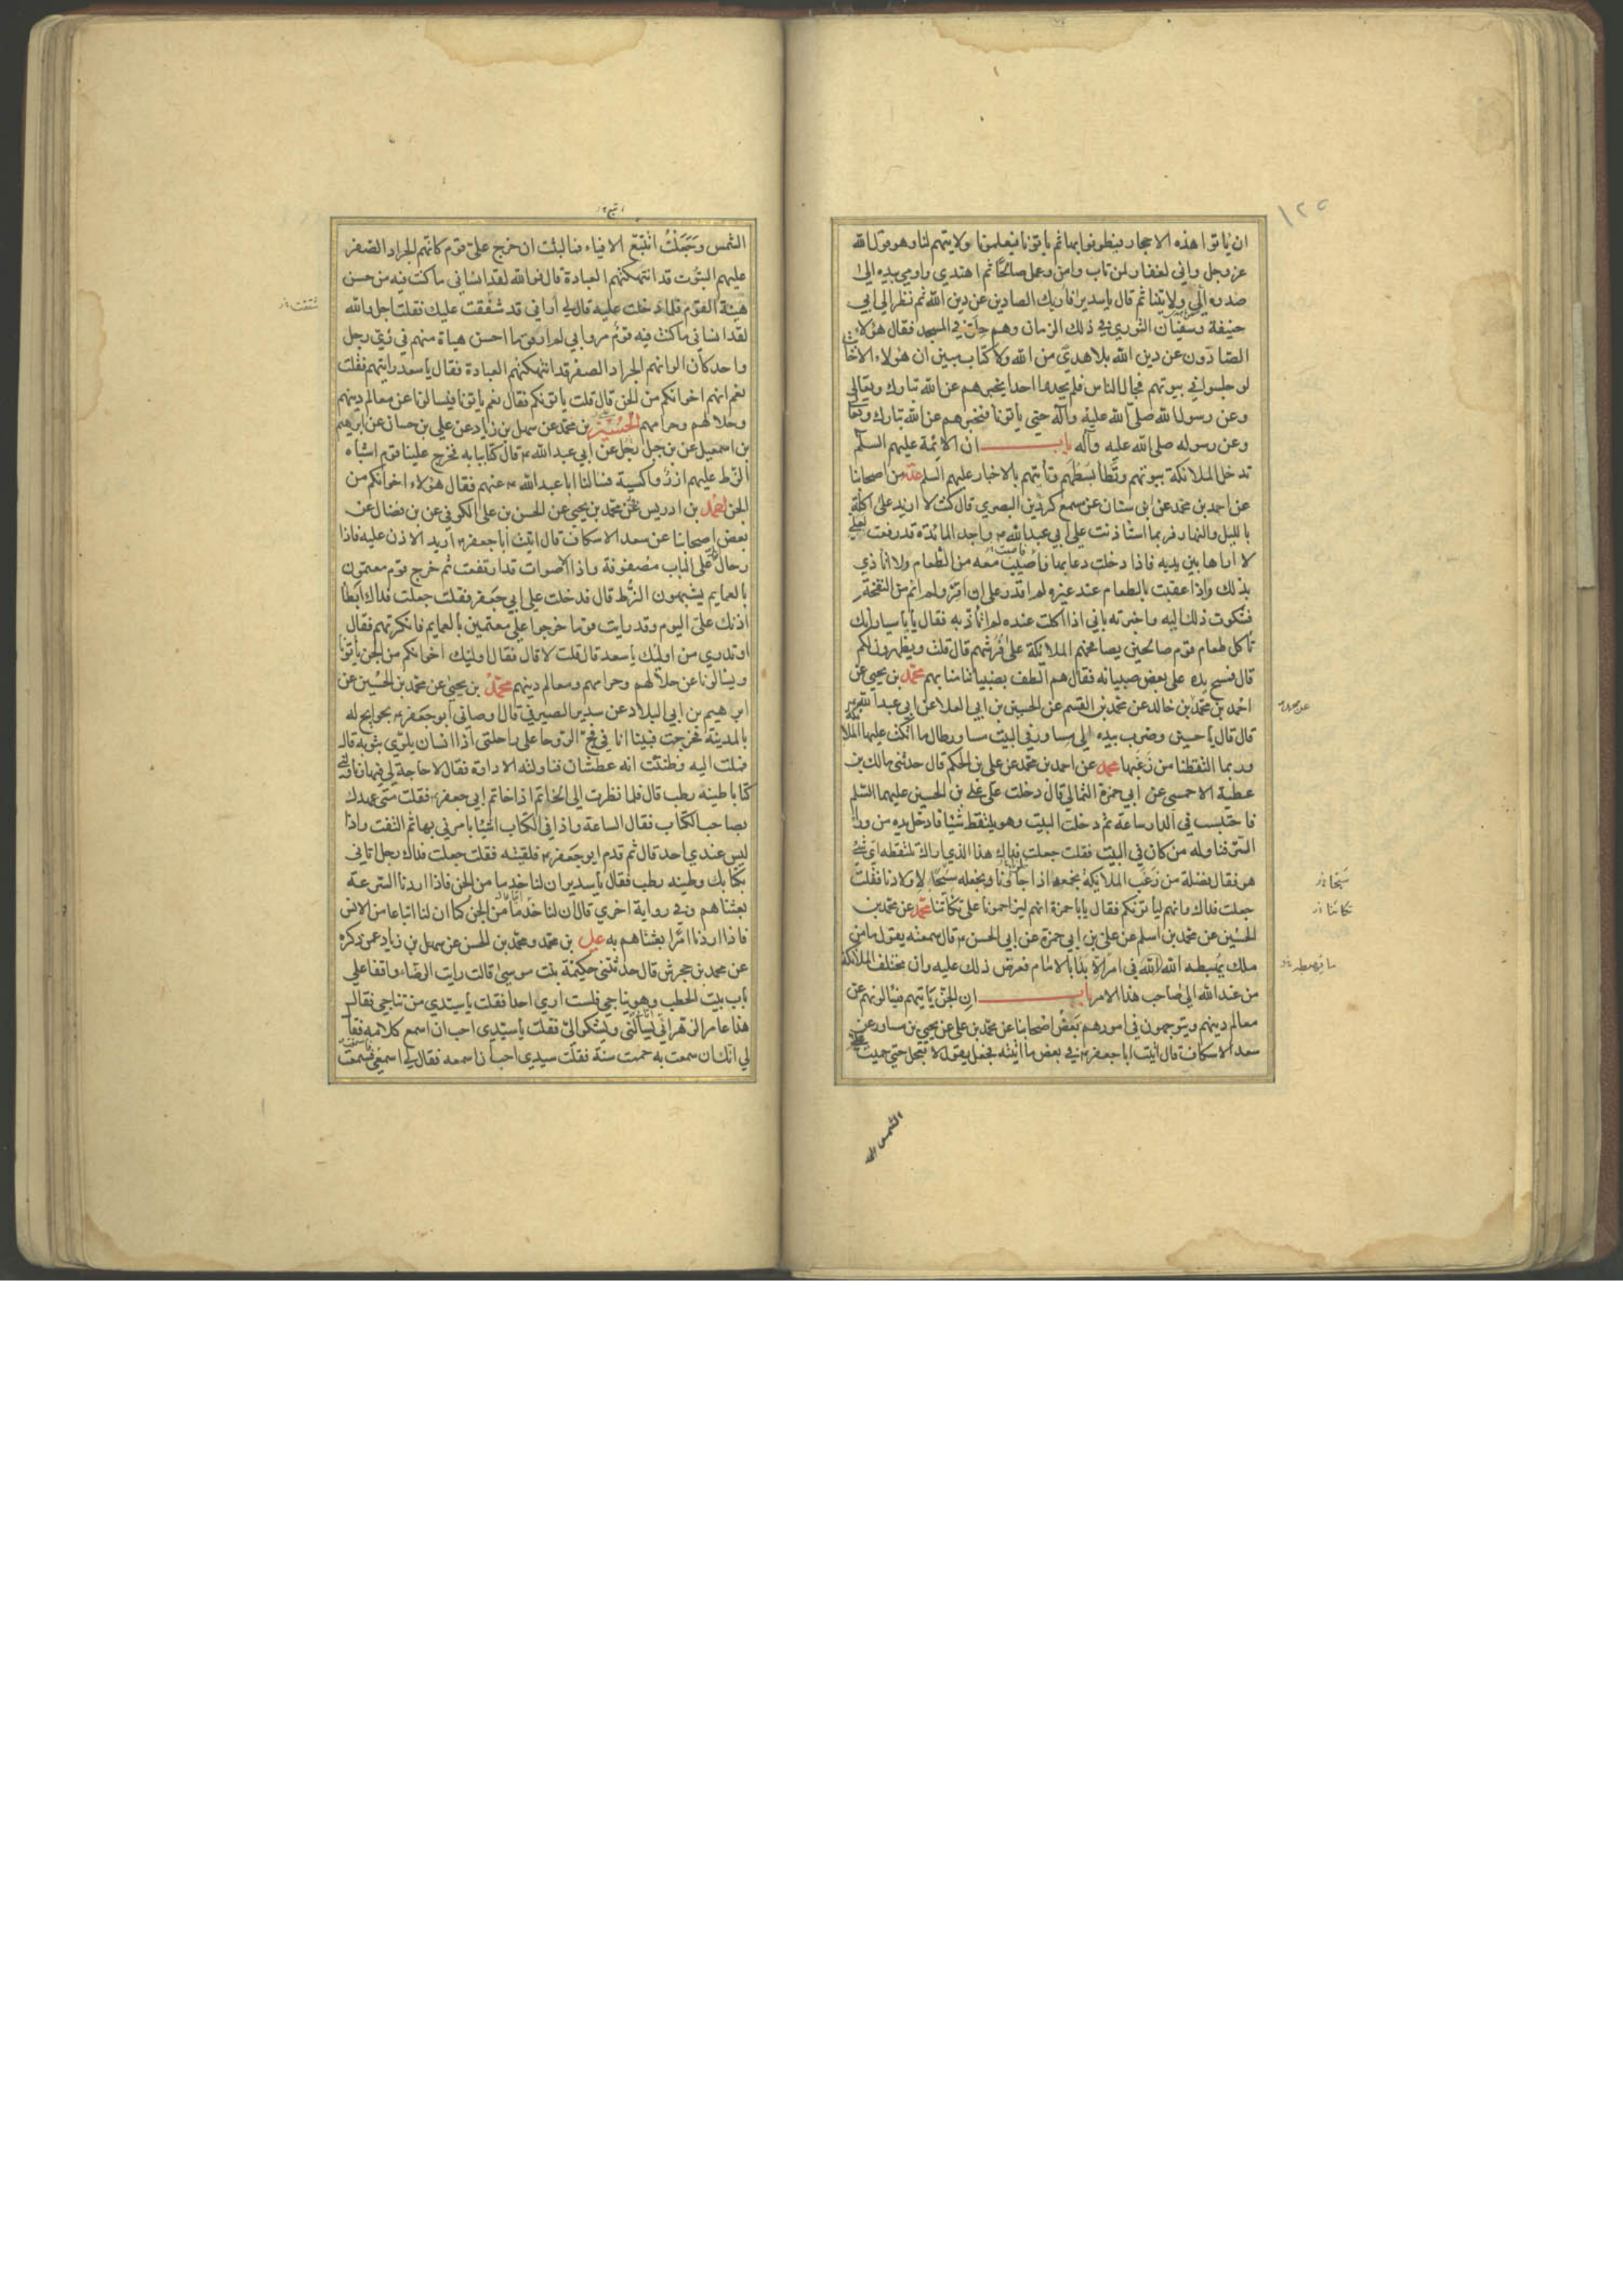 ان ياتوا هذه الاحجار فيطوفوا بها ثم ياتونا فيعلمونا ولايتهم لنا وهو قول الله
عز وجل واني لغفار لمن تاب وامن وعمل صالحا ثم اهتدي واومي بيده الي
صدره الي ولايتنا ثم قال يا سدير افاريك الصادين عن دين الله ثم نظر الي ابي
حنيفة وسفيان الثوري في ذلك الزمان وهم حلق في المسجد فقال هؤلاء
الصادون عن دين الله بلا هدي من الله ولا كتاب مبين ان هؤلاء الاخابث
لو جلسوا في بيوتهم فجال الناس فلم يجدوا احدا يخبرهم عن الله تبارك وتعالي
وعن رسول الله صلي الله عليه وآله حتي ياتونا فنخبرهم عن الله تبارك وتعا
وعن رسوله صلي الله عليه وآله باب ان الائمة عليهم السلم
تدخل الملائكة بيوتهم وتطأ بسطهم وتأتيهم بالاخبار عليهم السلم عدة من اصحابنا
عن احمد بن محمد عن ابن سنان عن مسمع كردين البصري قال كنت لا ازيد علي اكلة
بالليل والنهار فربما استأذنت علي ابي عبد الله ع واجد المائدة قد رفعت لعلي
لا اراها بين يديه فاذا دخلت دعا بها فاصيب معه من الطعام ولا اتأذي
بذلك واذا عقبت بالطعام عند غيره لم اقدر علي ان اقر ولم انم من النفخة
فشكوت ذلك اليه واخبرته باني اذا اكلت عنده لم اتأذ به فقال يا با سيار انك
تأكل طعام قوم صالحين يصافحهم الملائكة علي فرشهم قال قلت ويظهرون لكم
قال فمسح يده علي بعض صبيانه فقال هم الطف بصبياننا منا بهم محمد بن يحيي عن
احمد بن محمد بن خالد عن محمد بن القسم عن الحسين بن ابي العلا عن ابي عبد الله ع
قال قال يا حسين وضرب بيده الي مساور في البيت مساور طال ما اتكت عليها الملا
وربما التقطنا من زغبها محمد عن احمد بن محمد عن علي بن الحكم قال حدثني مالك بن
عطية الاحمسي عن ابي حمزة الثمالي قال دخلت علي علي بن الحسين عليهما السلم
فاحتبست في الدار ساعة ثم دخلت البيت وهو يلتقط شيئا فادخل يده من ورا
الستر فناوله من كان في البيت فقلت جعلت فداك هذا الذي اراك تلتقطه اي شي
هو فقال فضلة من زغب الملائكة نجمعه اذا خلونا ونجعله سيحا لاولادنا فقلت
جعلت فداك وانهم ليأتونكم فقال يا با حمزة انهم ليزاحمونا علي تكأتنا محمد عن محمد بن
الحسين عن محمد بن اسلم عن علي بن ابي حمزة عن ابي الحسن ع قال سمعته يقول ما من
ملك يهبطه الله في امر الا بدا بالامام فعرض ذلك عليه وان مختلف الملائكة
من عند الله الي صاحب هذا الامر باب ان الجن ياتيهم فيسألونهم عن
معالم دينهم ويتوجهون في امورهم بعض اصحابنا عن محمد بن علي عن يحيي بن مساور عن
سعد الاسكاف قال اتيت ابا جعفر ع في بعض ما اتيته فجعل يقول لا تعجل حتي حميت
الشمس
الشمس وجعلت اتتبع الافياء فما لبثت ان خرج علي قوم كانهم الجراد الصفر
عليهم البتوت قد انتهكتهم العبادة قال فوالله لقد انساني ما كنت فيه من حسن
هيئة القوم فلما دخلت عليه قال لي أراني قد شفقت عليك فقلت اجل والله
لقد انساني ما كنت فيه قوم مروا بي لم ار قوما احسن هيأة منهم في زي رجل
واحد كأن الوانهم الجراد الصفر قد انتهكتهم العبادة فقال يا سعد رايتهم فقلت
نعم انهم اخوانكم من الجن قال قلت ياتونكم فقال نعم ياتونا فيسألونا عن معالم دينهم
وحلالهم وحرامهم الحسين بن محمد عن سهل بن زياد عن علي بن حسان عن ابرهيم
بن اسمعيل عن بن جبل عن ابي عبد الله ع قال كنا ببابه فخرج علينا قوم اشباه
الزط عليهم ازر واكسية فسالنا ابا عبد الله ع عنهم فقال هؤلاء اخوانكم من
الجن احمد بن ادريس عن محمد بن يحيي عن الحسن بن علي الكوفي عن بن فضال عن
بعض اصحابنا عن سعد الاسكاف قال اتيت ابا جعفر ع اريد الاذن عليه فاذا
رحال علي الباب مصفوفة واذا الاصوات قد ارتفعت ثم خرج قوم معتمون
بالعمايم يشبهون الزط قال فدخلت علي ابي جعفر فقلت جعلت فداك ابطأ
اذنك علي اليوم وقد رايت قوما خرجوا علي معتمين بالعمايم فانكرتهم فقال
اوتدري من اوليك يا سعد قال قلت لا قال فقال اوليك اخوانكم من الجن يأتونا
ويسالونا عن حلالهم وحرامهم ومعالم دينهم محمد بن يحيي عن محمد بن الحسين عن
ابرهيم بن ابي البلاد عن سدير الصيرفي قال اوصاني ابو جعفر ع بحوايج له
بالمدينة فخرجت فبينا انا في فج الروحا علي راحلتي اذا انسان يلوي بثوبه قال
فملت اليه وظننت انه عطشان فناولته الاداوة فقال لا حاجة لي فيها وناولني
كتابا طينه رطب قال فلما نظرت الي الخاتم اذا خاتم ابي جعفر ع فقلت متي عهدك
بصاحب الكتاب فقال الساعة واذا في الكتاب اشيا يامرني بها ثم التفت واذا
ليس عندي احد قال ثم قدم ابو جعفر ع فلقيته فقلت جعلت فداك رجل اتاني
بكتابك وطينه رطب فقال يا سدير ان لنا خدما من الجن فاذا اردنا السرعة
بعثناهم وفي رواية اخري قال ان لنا خدما من الجن كما ان لنا اتباعا من الانس
فاذا اردنا امرا بعثناهم به علي بن محمد ومحمد بن الحسن عن سهل بن زياد عمن ذكره
عن محمد بن جحرش قال حدثتني حكيمة بنت موسي قالت رايت الرضاء واقفا علي
باب بيت الحطب وهو يناجي فلست اري احدا فقلت يا سيدي من تناجي فقال
هذا عامر الزهراني يسألني ويشكو الي فقلت يا سيدي احب ان اسمع كلامه فقا
لي انك ان سمعت به حممت سنة فقلت سيدي احب ان اسمعه فقال لي اسمعي فسمعت